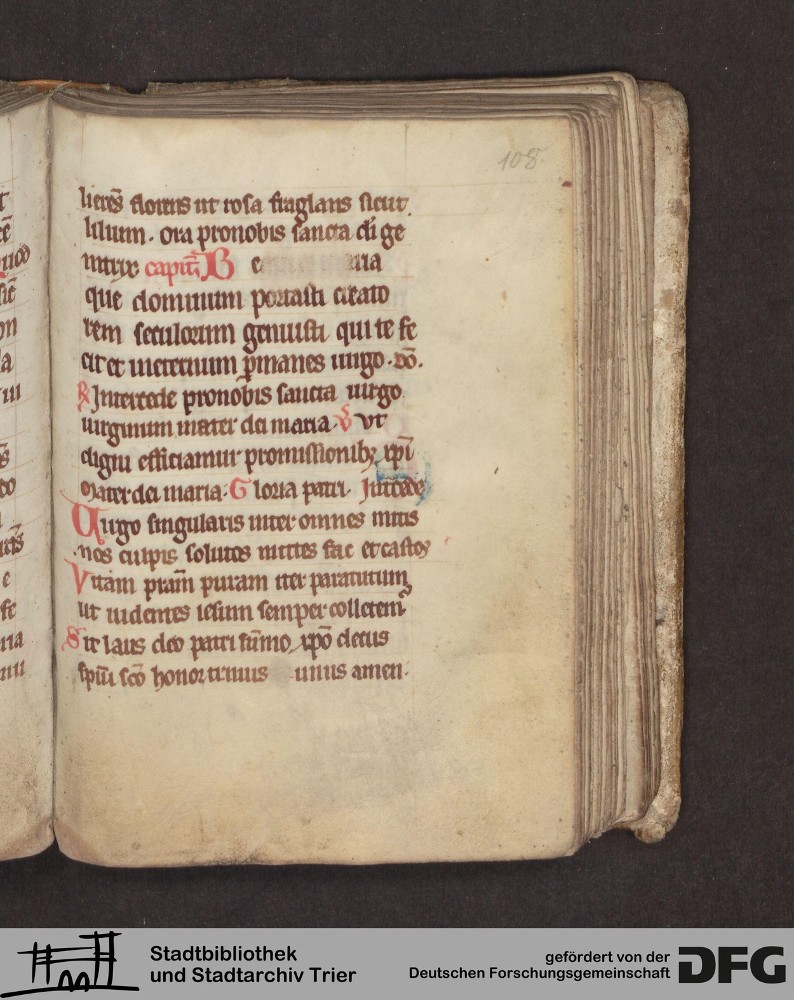 108
lieres florens ut rosa fraglans sicut
lilium. ora pronobis sancta di ge
nitrix capitm B e ria
que dominum portasti creato
rem seculorum genuisti qui te fe
cit et ineternum pmanes uirgo. do.
R Intercede pronobis sancta uirgo
uirginum mater dei maria. V vt
digni efficiamur promissionibz xpi
Mater dei maria. Gloria patri. Intcede
Uirgo singularis inter omnes mitis
nos culpis solutos mittes fac et castos
Vitam pram puram iter paratutum
ut uidentes iesum semper colletem
Sit laus deo patri sumo xpo decus
spiu sco honor trinus unus amen.
Stadtbibliothek
und Stadtarchiv Trier
gefördert von der
Deutschen Forschungsgemeinschaft
DFG